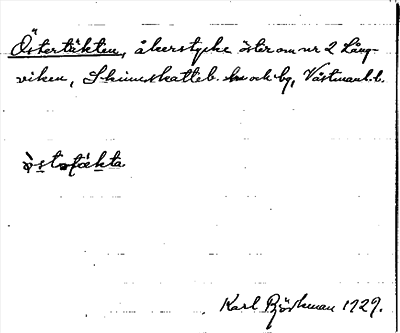 Östertäkten, åkerstycke öster om nr 2 Lång-
viken, Skinnskatteb. sn och bg, Västmanl. l.
östefäkta
Karl Björkman 1929.